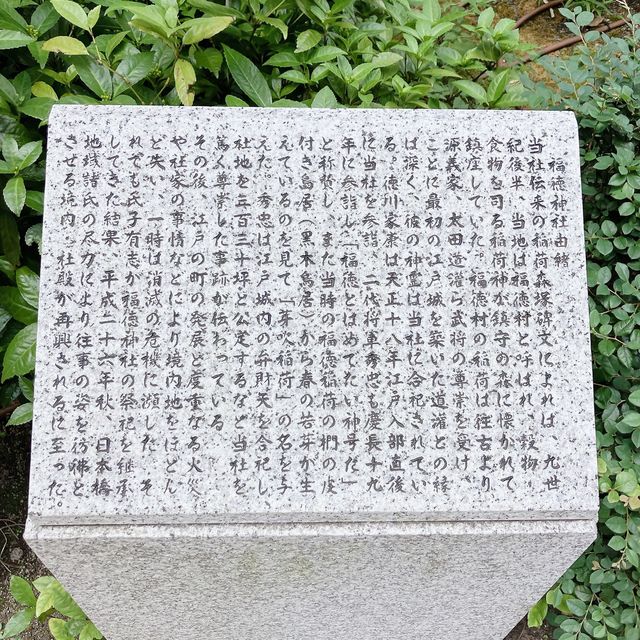 福徳神社由緒
当社伝来の稲荷森塚碑文によれば、九世
紀後半、当地は福徳村と呼ばれ、穀物・
食物を司る稲荷神が鎮守の森に懐かれて
鎮座していた。福徳村の稲荷は往古より
源義家、太田道灌ら武将の尊崇を受け、
ことに最初の江戸城を築いた道灌との縁
は深く、彼の神霊は当社に合祀されてい
る。徳川家康は天正十八年江戸入部直後
に当社を参詣、二代将軍秀忠も慶長十九
年に参詣し、「福徳とはめでたい神号だ」
と称賛し、また当時の福徳稲荷の椚の皮
付き鳥居（黒木鳥居）から春の若芽が生
えているのを見て「芽吹稲荷」の名を与
えた。秀忠は江戸城内の弁財天を合祀し、
社地を三百三十坪と公定するなど当社を
篤く尊崇した事跡が伝わっている。
その後、江戸の町の発展と度重なる火災
や社家の事情などにより境内地をほとん
ど失い、一時は消滅の危機に瀕した。そ
れでも氏子有志が福徳神社の祭祀を継承
してきた結果、平成二十六年秋、日本橋
地域諸氏の尽力により往事の姿を彷彿と
させる境内、社殿が再興されるに至った。